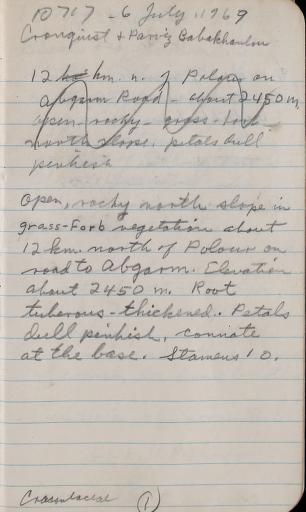 10717 - 6 July, 1969
Cronquist & Parviz Babakhanlou
12 km. n. of Polour on
Abgarm Road - about 2450 m,
open - rocky - grass-forb
north slope. petals dull
pinkish
Open, rocky north slope in
grass-forb vegetation about
12 km. north of Polour on
road to Abgarm. Elevation
about 2450 m. Root
tuberous-thickened. Petals
dull pinkish, connate
at the base. Stamens 10.
Crassulaceae 1